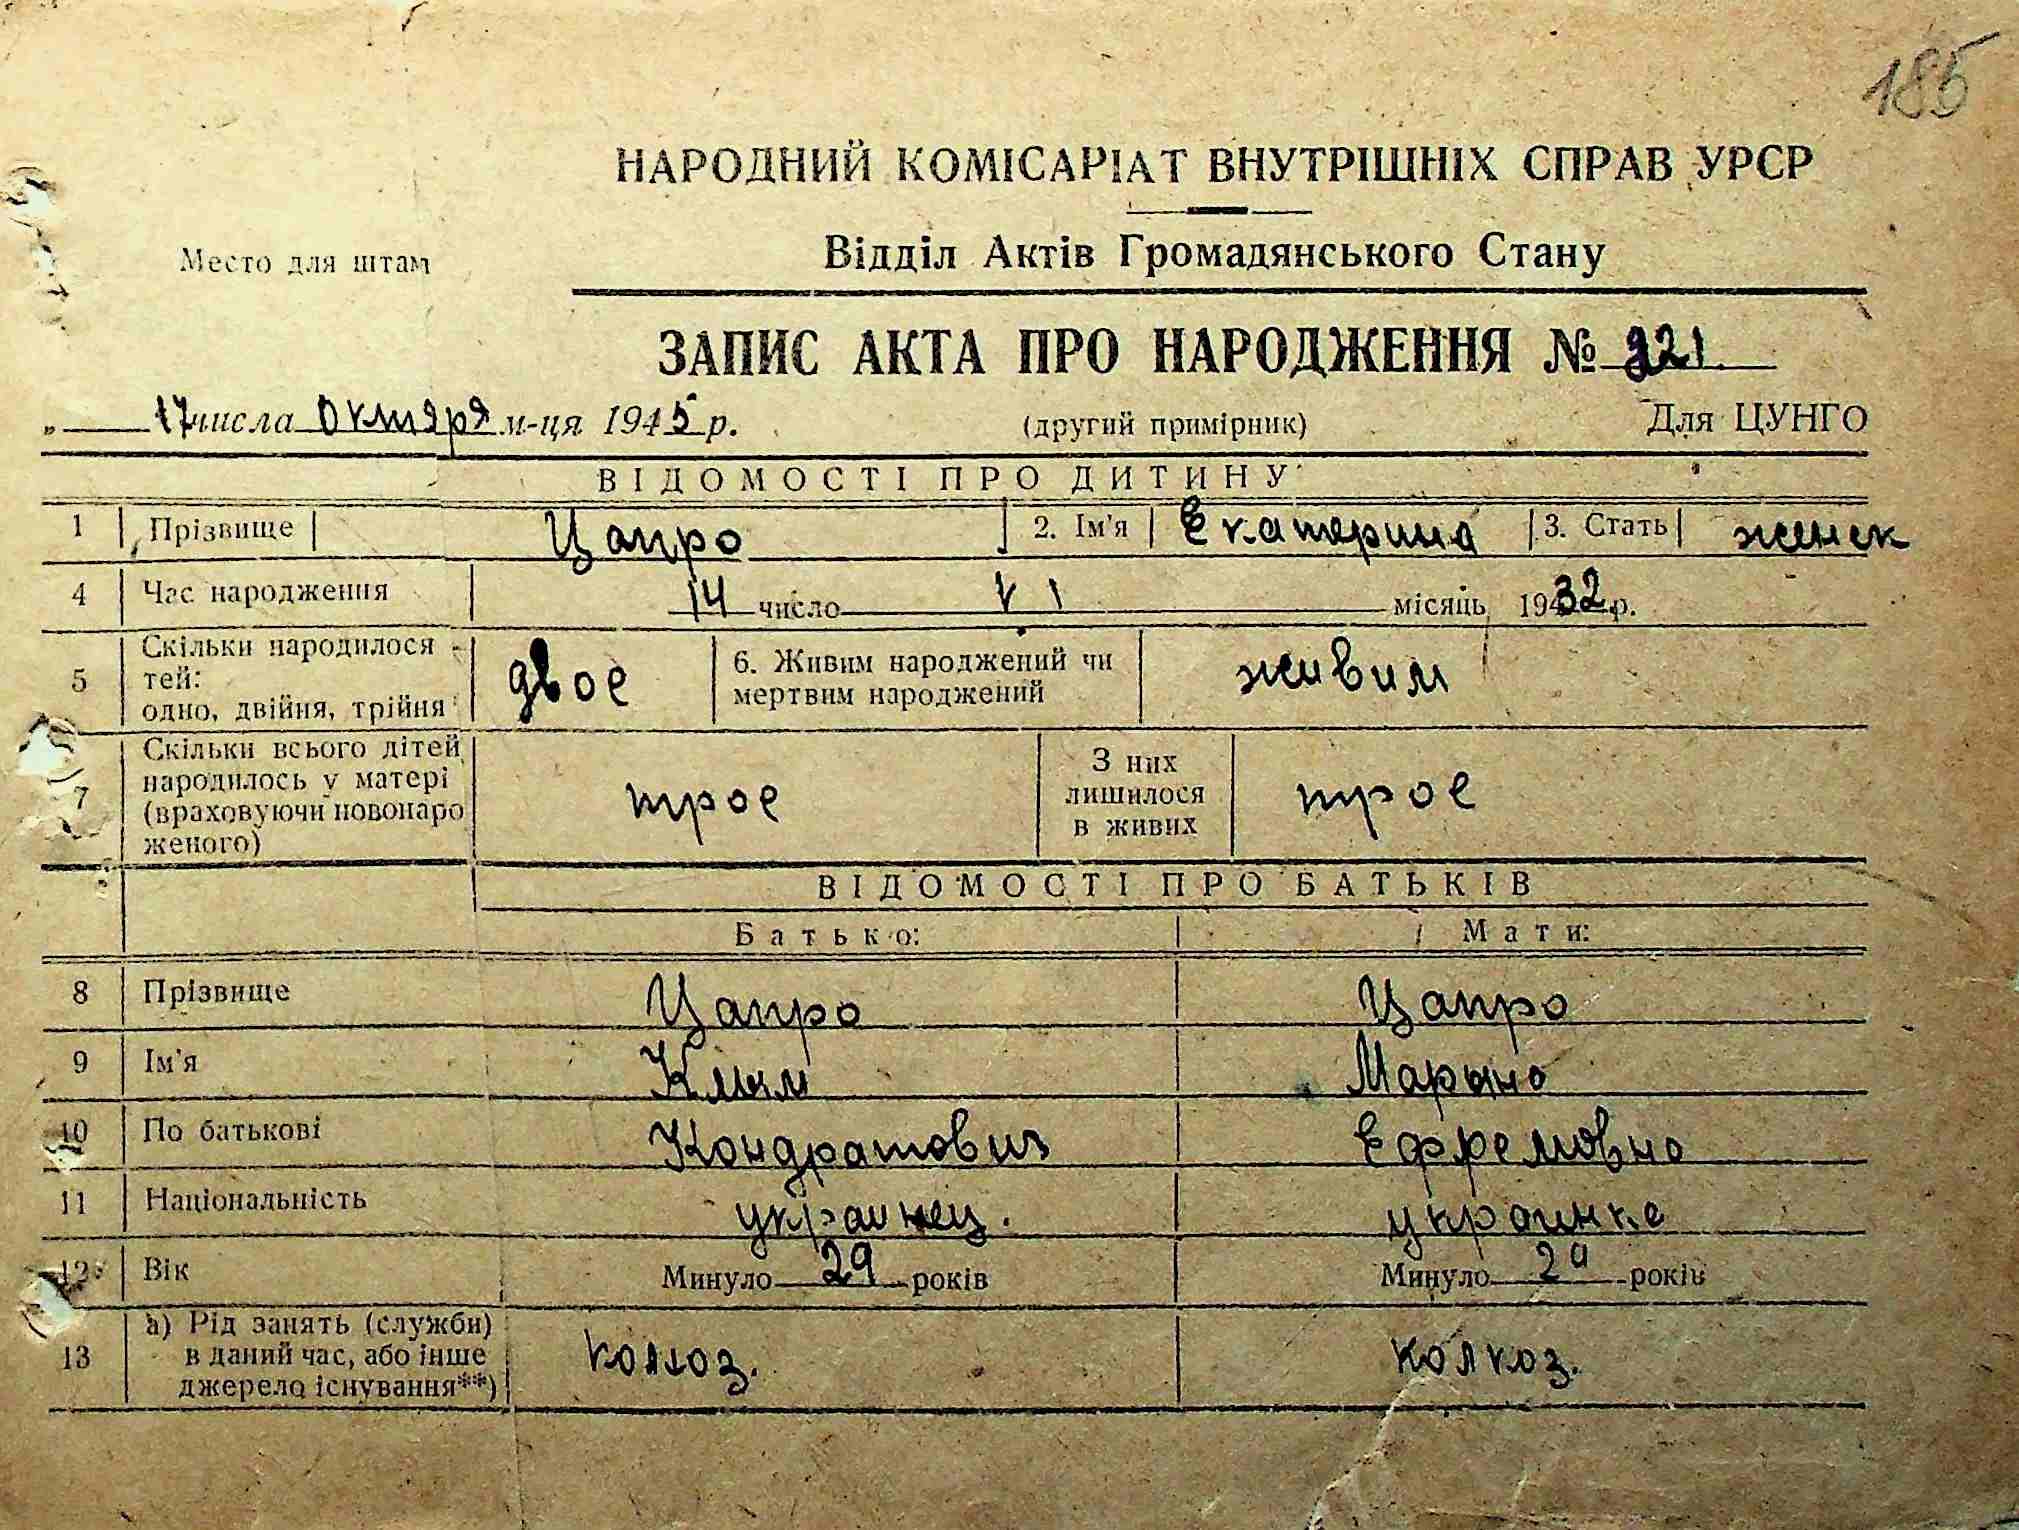 185
НАРОДНИЙ КОМІСАРІАТ ВНУТРІШНІХ СПРАВ УРСР
Место для штам
Відділ Актів Громадянського Стану
ЗАПИС АКТА ПРО НАРОДЖЕННЯ № 221
„ 17 числа Октября м-ця 1945 р. (другий примірник) Для ЦУНГО
ВІДОМОСТІ ПРО ДИТИНУ
1 Прізвище Цапро 2. Ім'я Екатерина 3. Стать женск
4 Час народження 14 число VI місяць 1932 р.
5 Скільки народилося тей: одно, двійня, трійня двое 6. Живим народжений чи мертвим народжений живим
7 Скільки всього дітей народилось у матері (враховуючи новонаро женого) трое З них лишилося в живих трое
ВІДОМОСТІ ПРО БАТЬКІВ
Батько: Мати:
8 Прізвище Цапро Цапро
9 Ім'я Клим Марина
10 По батькові Кондратович Ефремовна
11 Національність украинец. украинка
12 Вік Минуло 29 років Минуло 29 років
13 а) Рід занять (служби) в даний час, або інше джерело існування**) колхоз. колхоз.